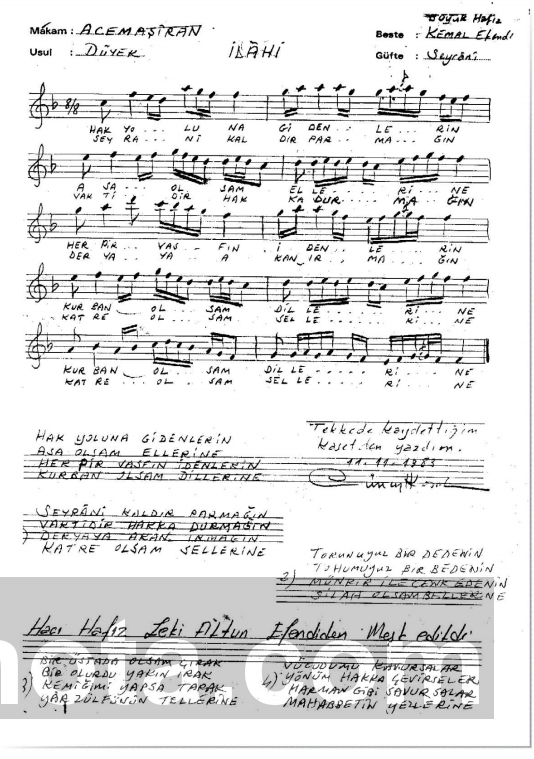 Makam : ACEMAŞİRAN
Usul : DÜYEK
İLÂHİ
Beste : BÜYÜK Hafız KEMAL Efendi
Güfte : Seyrânî
8/8
HAK YO... LU NA Gİ DEN... LE... RİN
SEY RA... Nİ KAL DIR PAR... MA... ĞIN
A SA... OL SAM EL LE... Rİ... NE
VAK Tİ... DİR HAK KA DUR... MA... ĞIN
HER PİR... VAS... FIN İ DEN... LE RİN
DER YA... YA A KAN IR... MA... ĞIN
KUR BAN OL... SAM DİL LE... Rİ... NE
KAT RE... OL... SAM SEL LE... Rİ... NE
KUR BAN OL... SAM DİL LE... Rİ... NE
KAT RE... OL... SAM SEL LE... Rİ... NE
HAK YOLUNA GİDENLERİN
ASA OLSAM ELLERİNE
HER PİR VASFIN İDENLERİN
KURBAN OLSAM DİLLERİNE
Tekkede kaydettiğim
kasetden yazdım.
11.11.1983
SEYRÂNİ KALDIR PARMAĞIN
VAKTİDİR HAKKA DURMAĞIN
DERYAYA AKAN IRMAĞIN
KATRE OLSAM SELLERİNE
TORUNUYUZ BİR DEDENİN
TOHUMUYUZ BİR BEDENİN
2) MÜNKİR İLE CENK EDENİN
SİLAH OLSAM BELLERİNE
Hacı Hafız Zeki Altun Efendiden Meşk edildi
BİR ÜSTADA OLSAM ÇIRAK
BİR OLURDU YAKIN IRAK
3) KEMİĞİMİ YAPSA TARAK
YÂR ZÜLFÜNÜN TELLERİNE
VÜCUDUMU KAVURSALAR
4) YÖNÜM HAKKA ÇEVİRSELER
HARMAN GİBİ SAVURSALAR
MAHABBETİN YELLERİNE
nota.com